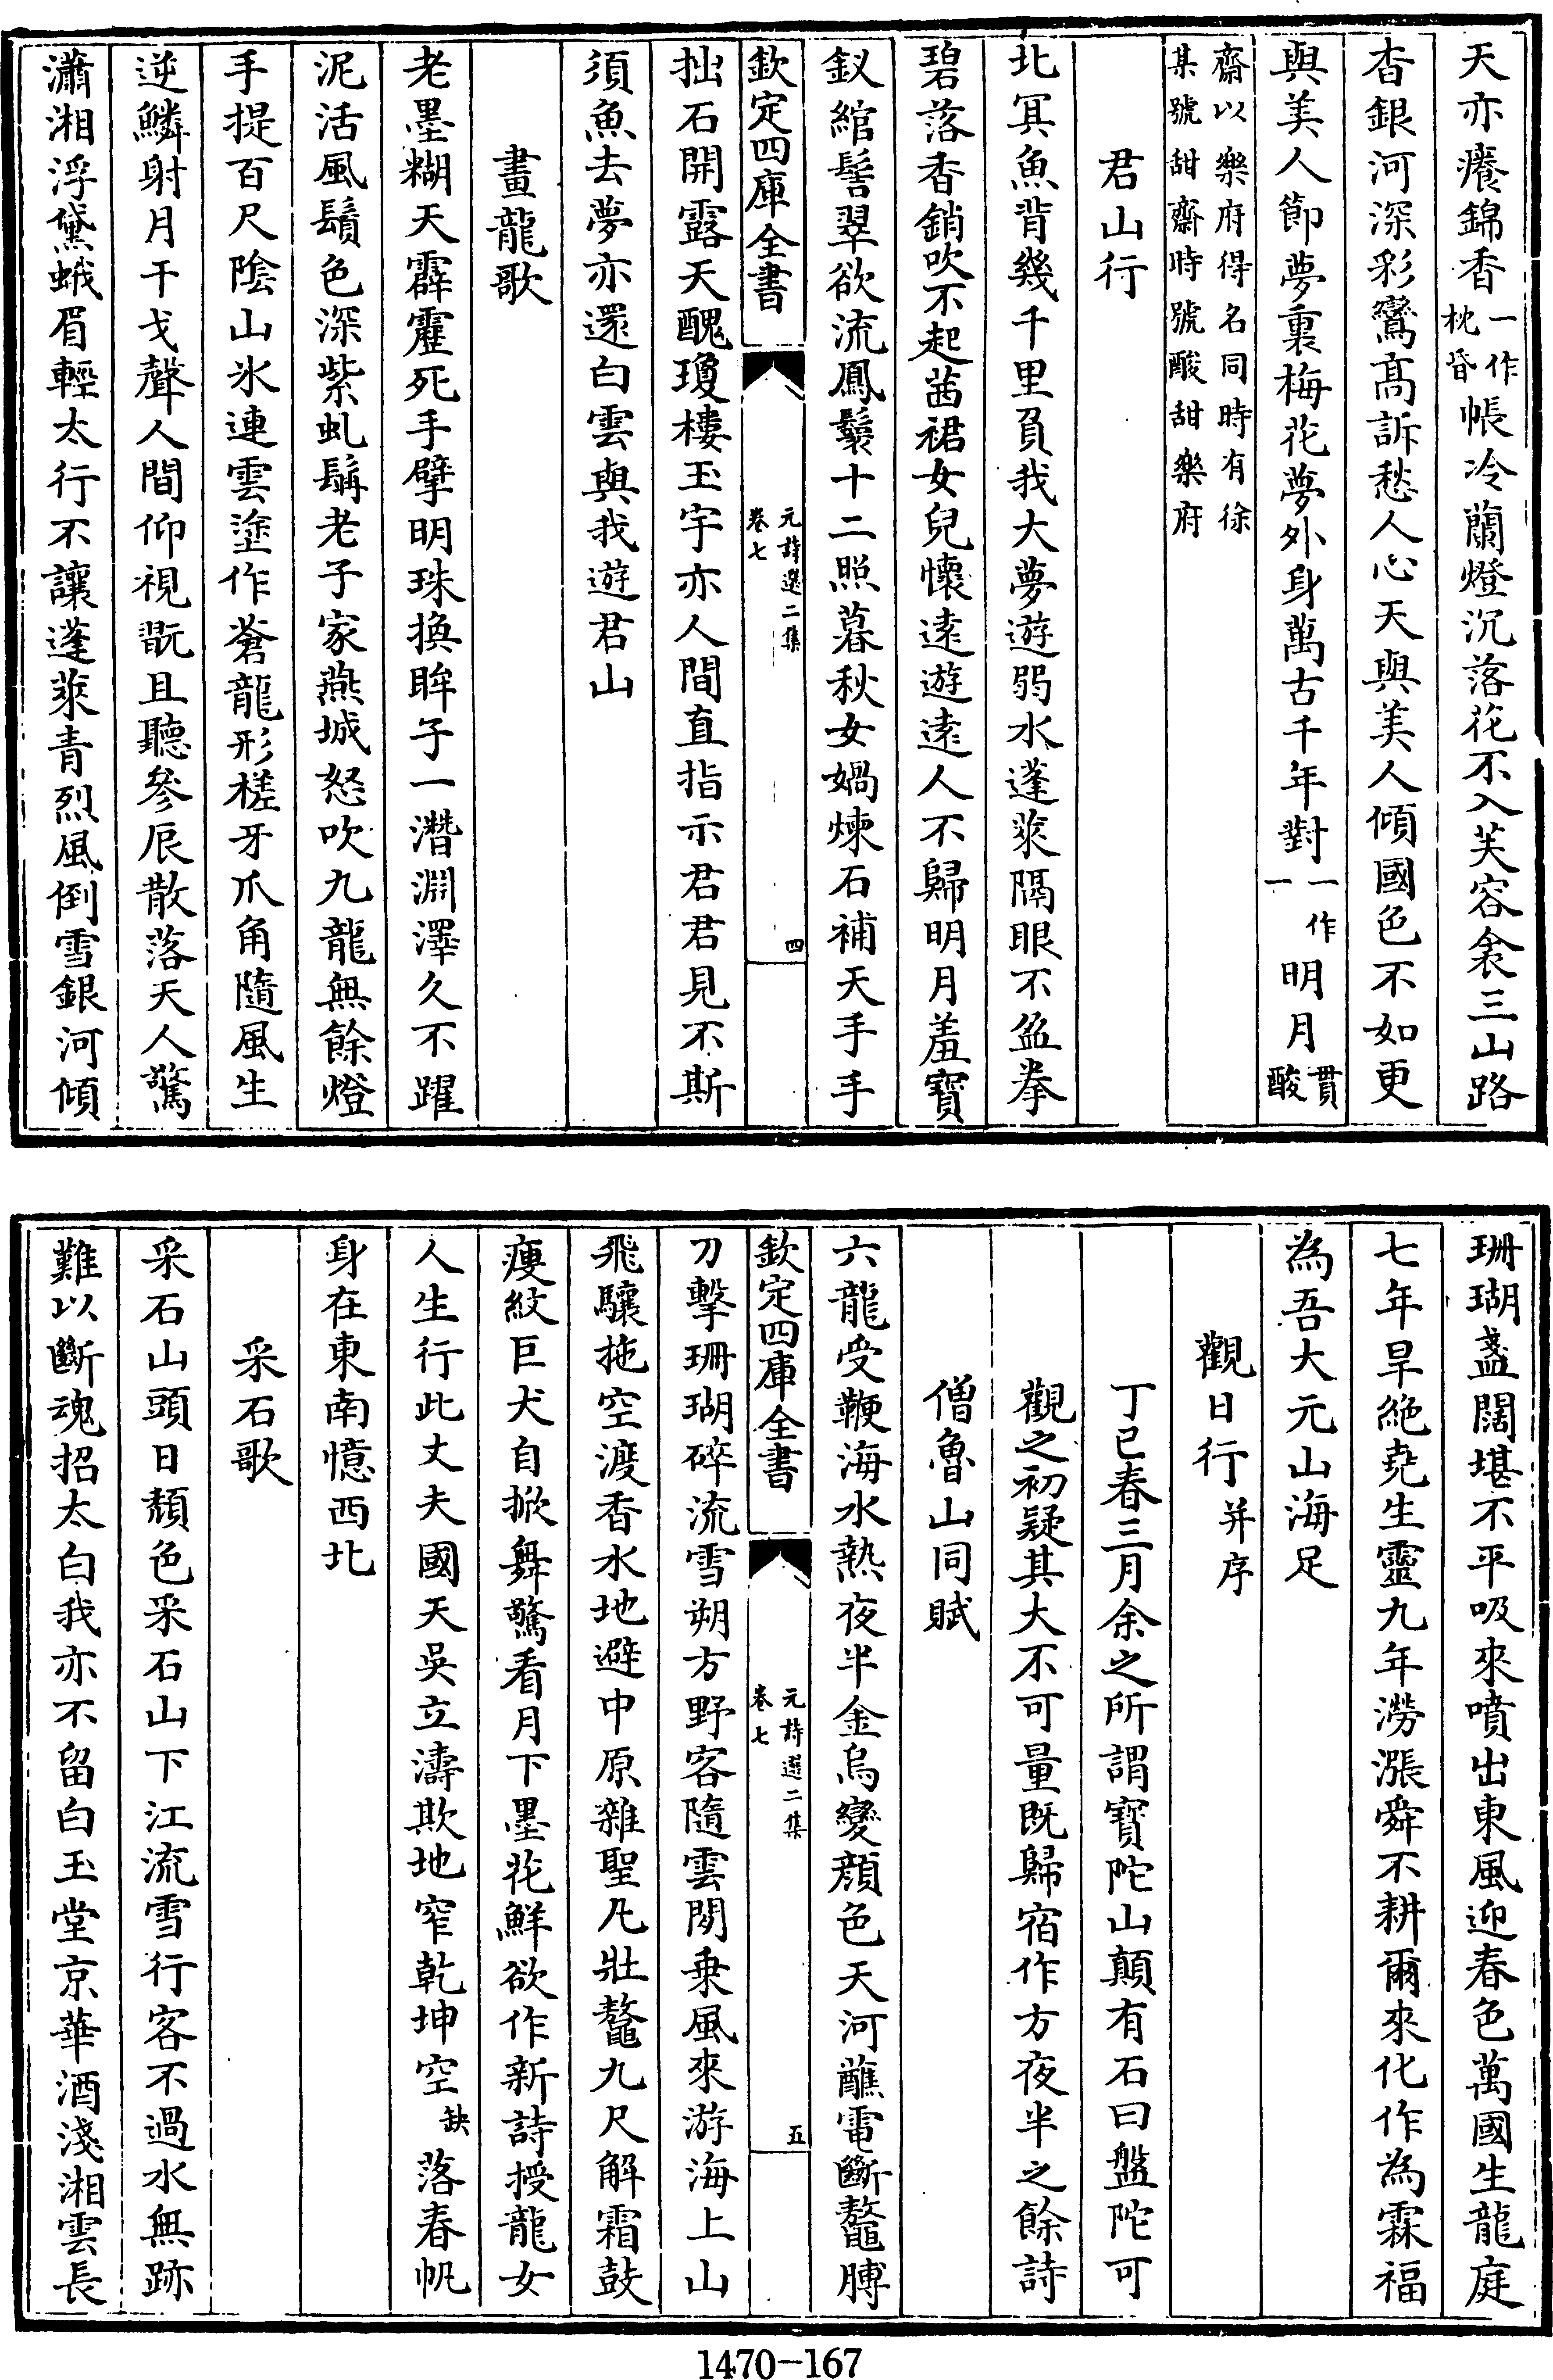 天亦癢錦香一作枕昏帳冷蘭燈沉落花不入芙容衾三山路
杳銀河深彩鸞高訴愁人心天與美人傾國色不如更
與美人節夢裏梅花夢外身萬古千年對一作一明月貫酸
齋以樂府得名同時有徐
某號甜齋時號酸甜樂府
君山行
北冥魚背幾千里負我大夢遊弱水蓬萊隔眼不盈拳
碧落香銷吹不起茜裙女兒懷遠遊遠人不歸明月羞寶
釵綰髻翠欲流鳳鬟十二照暮秋女媧煉石補天手手
欽定四庫全書
元詩選二集
卷七
四
拙石開露天醜瓊樓玉宇亦人間直指示君君見不斯
須魚去夢亦還白雲與我遊君山
畫龍歌
老墨糊天霹靂死手擘明珠換眸子一潛淵澤久不躍
泥活風鬚色深紫虬髯老子家燕城怒吹九龍無餘燈
手提百尺陰山氷連雲塗作蒼龍形槎牙爪角隨風生
逆鱗射月干戈聲人間仰視翫且聽參辰散落天人驚
瀟湘浮黛蛾眉輕太行不讓蓬萊青烈風倒雪銀河傾
珊瑚盞闊堪不平吸來噴出東風迎春色萬國生龍庭
七年旱絶堯生靈九年澇漲舜不耕爾來化作為霖福
為吾大元山海足
觀日行并序
丁巳春三月余之所謂寶陀山顛有石曰盤陀可
觀之初疑其大不可量既歸宿作方夜半之餘詩
僧魯山同賦
六龍受鞭海水熱夜半金烏變顔色天河蘸電斷鼇膊
欽定四庫全書
元詩選二集
卷七
五
刀擊珊瑚碎流雪朔方野客隨雲閒乗風來游海上山
飛驤拖空渡香水地避中原雜聖凡壯鼇九尺解霜鼓
瘦紋巨犬自掀舞驚看月下墨花鮮欲作新詩授龍女
人生行此丈夫國天吳立濤欺地窄乾坤空缺落春帆
身在東南憶西北
采石歌
采石山頭日頹色采石山下江流雪行客不過水無跡
難以斷魂招太白我亦不留白玉堂京華酒淺湘雲長
1470-167